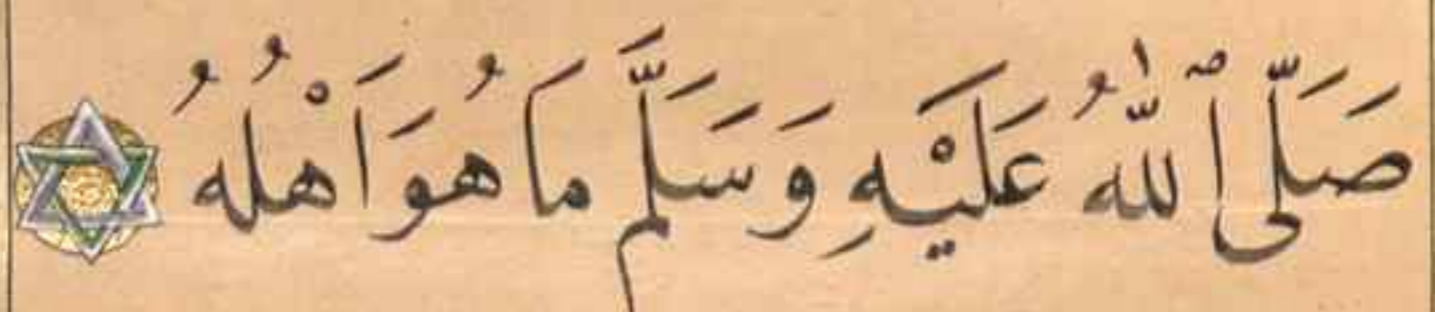 صَلَّى ٱللّٰهُ عَلَيْهِ وَسَلَّمَ مَا هُوَ اَهْلُهُ